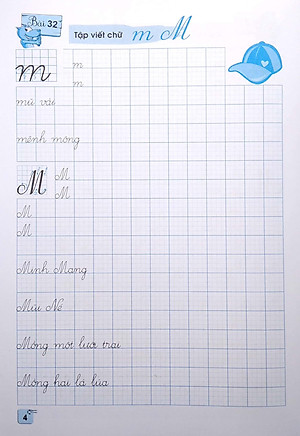 Bài 32
Tập viết chữ m M
m m
m
mũ vải
mênh mông
M M
M
M
M
Minh Mạng
Mũi Né
Mống một lưỡi trai
Mống hai lá lúa
4